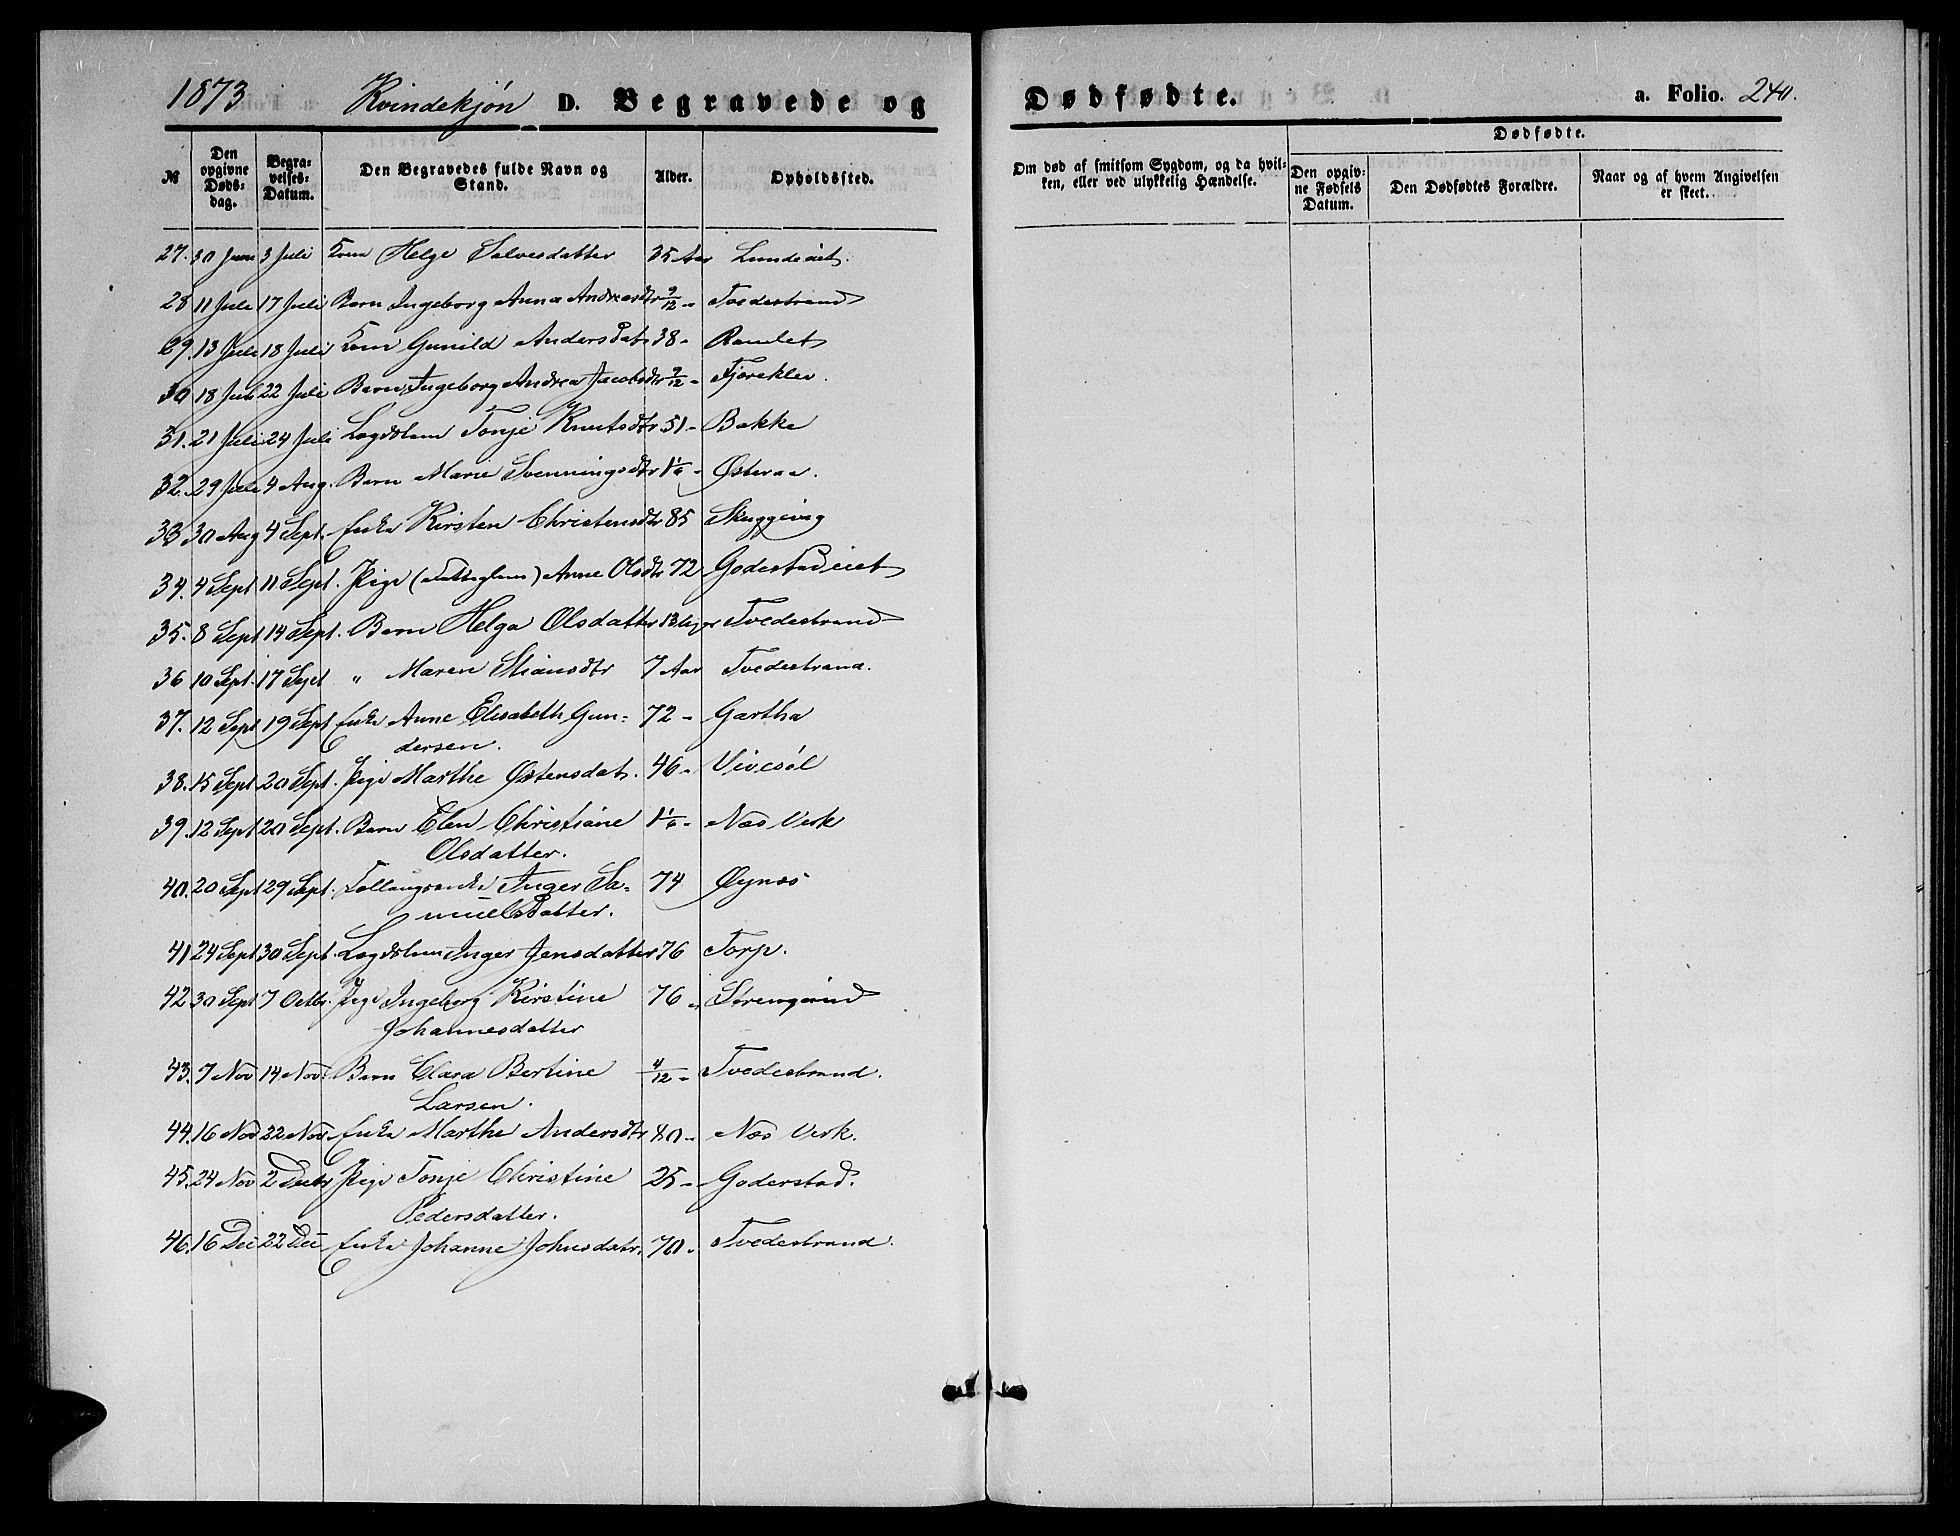 1873 Kvindekjön D. Begravede og Dødfødte. a. Folio. 240.
№ Den opgivne Døds-dag. Begra-velses-Datum. Den Begravedes fulde Navn og Stand. Alder. Opholdssted. Om død af smitsom Sygdom, og da hvil-ken, eller ved ulykkelig Hændelse. Dødfødte. Den opgiv-ne Fødsels Datum. Den Dødfødtes Forældre. Naar og af hvem Angivelsen er skeet.
27. 30 Juni 3 Juli Kone Helge Salvesdatter 35 Aar Lundeiet.
28 11 Juli 17 Juli Barn Ingeborg Anna Andreasdtr 9/12 - Tvedestrand
29. 13 Juli 18 Juli Kone Gunild Andersdat 38 - Ramlet
30 18 Juli 22 Juli Barn Ingeborg Andrea Jacobsdtr 9/12 - Fjæreklev.
31. 21 Juli 24 Juli Lægdslem Tonje Knutsdtr 51 - Bakke
32. 29 Juli 4 Aug. Barn Marie Svenningsdtr Østeraa.
33 30 Aug 4 Sept. Enke Kirsten Christensdtr 85 Skuggevig
34. 4 Sept 11 Sept. Pige Anne Olsdtr 72 Godestadeiet
35. 8 Sept 14 Sept. Barn Helga Olsdatter Tvedestrand
36 10 Sept. 17 Sept " Maren Stiansdtr 7 Aar Tvedestrand.
37. 12 Sept 19 Sept Enke Anne Elisabeth Gun- 72 - Gartha
dersen.
38. 15 Sept. 20 Sept. Pige Marthe Østensdat. 46 - Vivesöl
39. 12 Sept 20 Sept. Barn Elen Christiane Næs Verk
Olsdatter.
40. 20 Sept 29 Sept. Inger Sa- 74 Øynæs
muelsdatter.
41 24 Sept 30 Sept. Lægdslem Inger Jensdatter 76 Torp.
42 30 Sept 7 Octbr. Pige Ingeborg Kirstine 76 -
Johannesdatter
43. 7 Nov 14 Nov. Barn Clara Bertine 4/12 - Tvedestrand.
Larsen.
44. 16 Nov 22 Nov. Enke Marthe Andersdtr 80 - Næs Verk.
45. 24 Nov 2 Decbr Pige Tonje Christine 25 - Goderstad.
Pedersdatter.
46. 16 Dec 22 Dec Enke Johanne Johnsdatr. 70 - Tvedestrand.